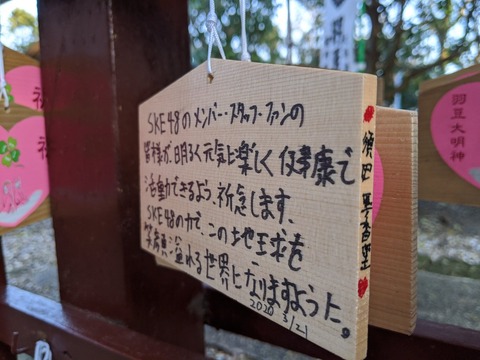 SKE48のメンバー・スタッフ・ファンの
皆様が、明るく元気に楽しく健康で
活動できるよう、祈念します。
SKE48の力で、この地球を
笑顔溢れる世界になりますように。
2020 3/21
須田 亜香里
羽豆大明神
祈